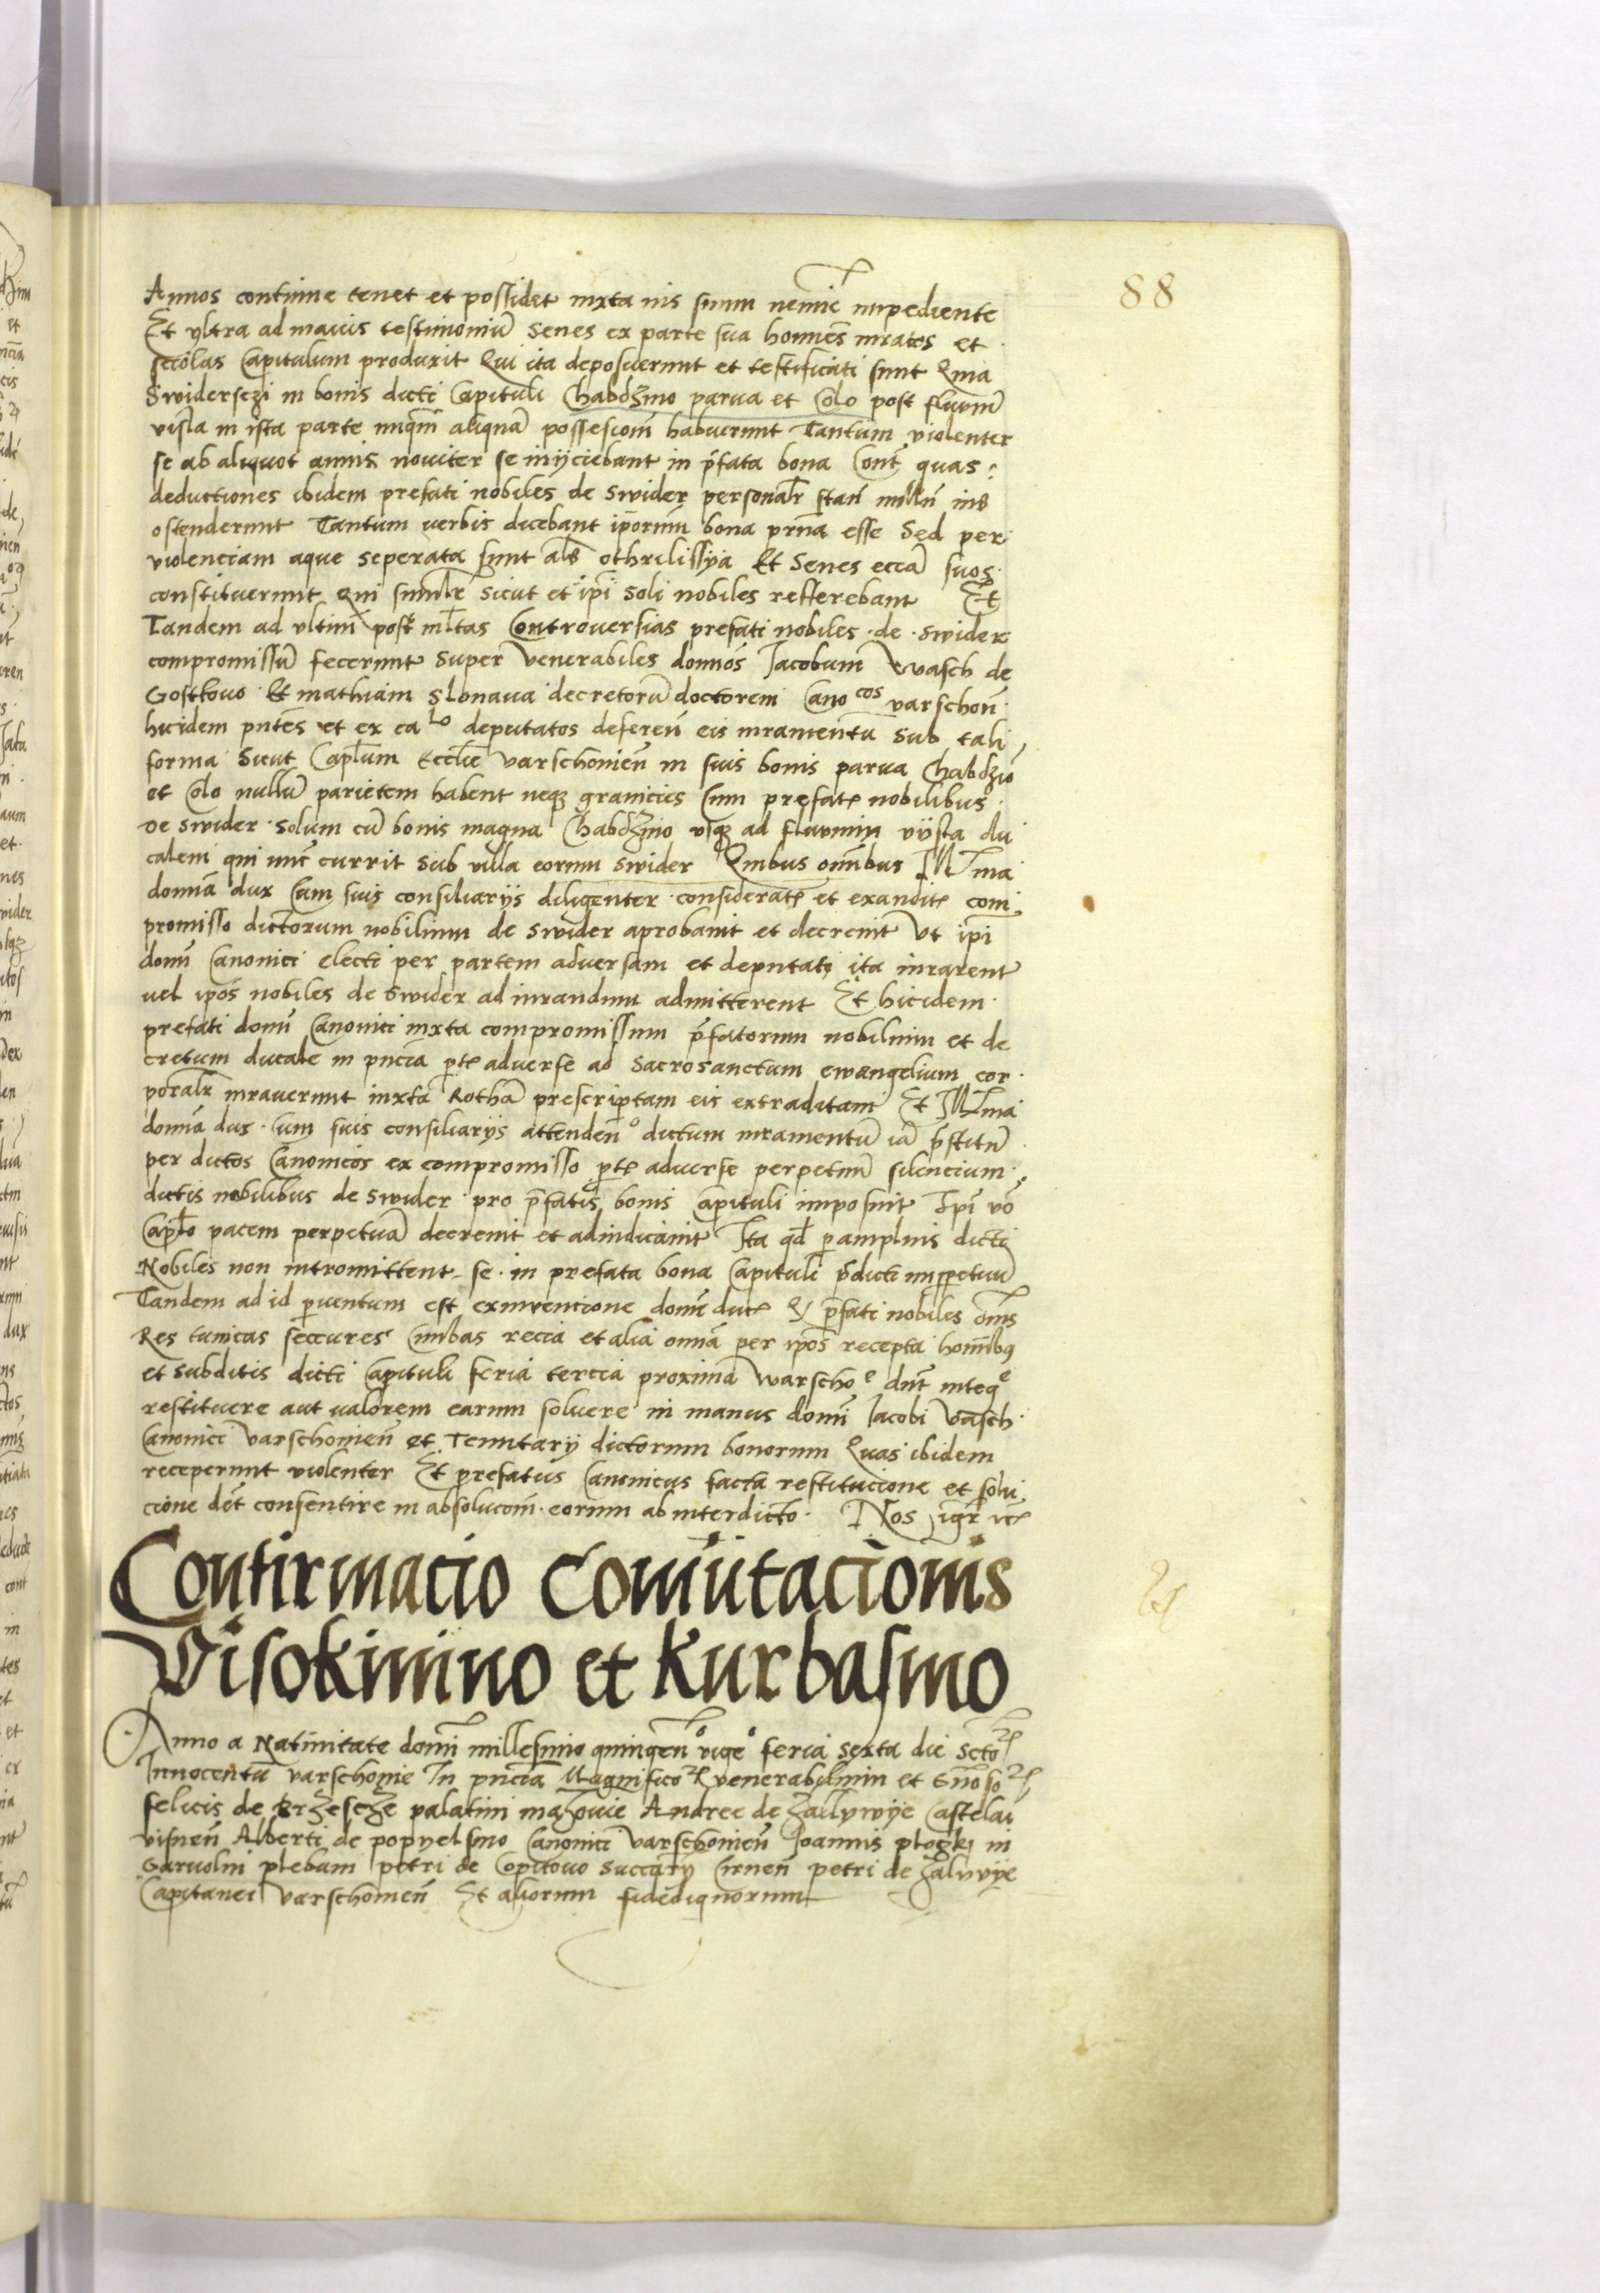 88
Annos continue tenet et possidet iuxta ius suum nemīe impediente
Et vltra ad maius testimoniū Senes ex parte sua homīes iuratos et
Capitulum produxit Qui ita deposuerunt et testificati sunt Quia
Swidersczi in bonis dicti Capituli Chabdzino parua et Colo post fluuiū
visla in ista parte nūqm̄ aliquā possesionē habuerunt Tantum violenter
se ab aliquot annis nouiter se inijciebant in p̄fata bona Cont̄ quas
deductiones ibidem prefati nobiles de Swider personalr̄ stan̄ nullū ius
ostenderunt Tantum verbis dicebant ip̄orum bona prn̄a esse Sed per
violenciam aque seperata sunt als̄ othrilissya Et Senes ecciā suos
constituerunt qui similr̄ sicut et ip̄i soli nobiles refferebant Et
Tandem ad vltim̄ post ml̄tas Controuersias prefati nobiles de Swider
compromissū fecerunt super venerabiles domnōs Jacobum Wasch de
Gostkouo Et mathiam slonawa decretorū doctorem Canocos varschon̄
hicidem pn̄tes et ex calo deputatos deferen̄ eis iuramentū sub tali
forma Sicut Capl̄um Eccl̄ie varschouien̄ in suis bonis parua Chabdzīo
et Colo nullū parietem habent neqz granicies Cum prefatꝫ nobilibus
De Swider solum cū bonis magna Chabdzino vsqz ad fluuium vijsla du
calem qui nūc currit sub villa eorum Swider Quibus om̄ibus Illma
domnā dux Cum suis consiliarijs diligenter consideratꝫ et exauditꝫ com
promisso dictorum nobilium de Swider aprobauit et decreuit Vt ip̄i
domī Canonici electi per partem aduersam et deputati ita iurarent
vel ipōs nobiles de Swider ad iurandum admitterent Et hicidem
prefati domī Canonici iuxta compromissum p̄fatorum nobilium et de
cretum ducale in pn̄cia p̄tꝫ aduerse ad Sacrosanctum ewangelium cor
poralr̄ iurauerunt iuxta Rothā prescriptam eis extraditam Et Illma
domnā dux Cum suis consiliarijs attenden̄ dictum iuramentū iā p̄stitū
per dictos Canonicos ex compromisso p̄tꝫ aduerse perpetuū silencium
dictis nobilibus de Swider pro p̄fatis bonis Capituli imposuit Ip̄i vō
Capl̄o pacem perpetuā decreuit et adiudicauit Ita qd̄ p̄amplius dicti
Nobiles non intromittent se in prefata bona Capituli p̄dicti inp̄petuū
Tandem ad id p̄uentum est ex inuencione domī ducꝫ Qz p̄fati nobiles oms̄
Res tunicas seccures Cimbas recia et alia omīa per ipōs recepta homībus
et subditis dicti Capituli feria tercia proxima Warschoe dn̄t intege
restituere aut valorem earum soluere in manus domī Jacobi Vasch
Canonici varschouien̄ et Tenutarij dictorum bonorum Quas ibidem
receperunt violenter Et prefatus Canonicus facta restitucione et solu
cione det̄ consentire in absolucōm eorum ab interdicto Nos igr̄ ʼtcꝫ
Confirmacio Comūtacionis
Visokinino et Kurbasino
Anno a Natiuitate domī millesimo quingen̄o vigeo feria sexta die Sctoꝝ
Innocentū varschouie In pn̄cia Magnificoꝝ venerabilium et Gn̄osoꝝ
felicis de Brzesche palatini mazouie Andree de Zallywye Castelāi
visnen̄ Alberti de popyelsino Canonici varschouien̄ Joannis plogki in
Garuolin plebani petri de Copitouo succarij Cirnen̄ petri de Zalivye
Capitanei varschouien̄ Et aliorum fidedignorum